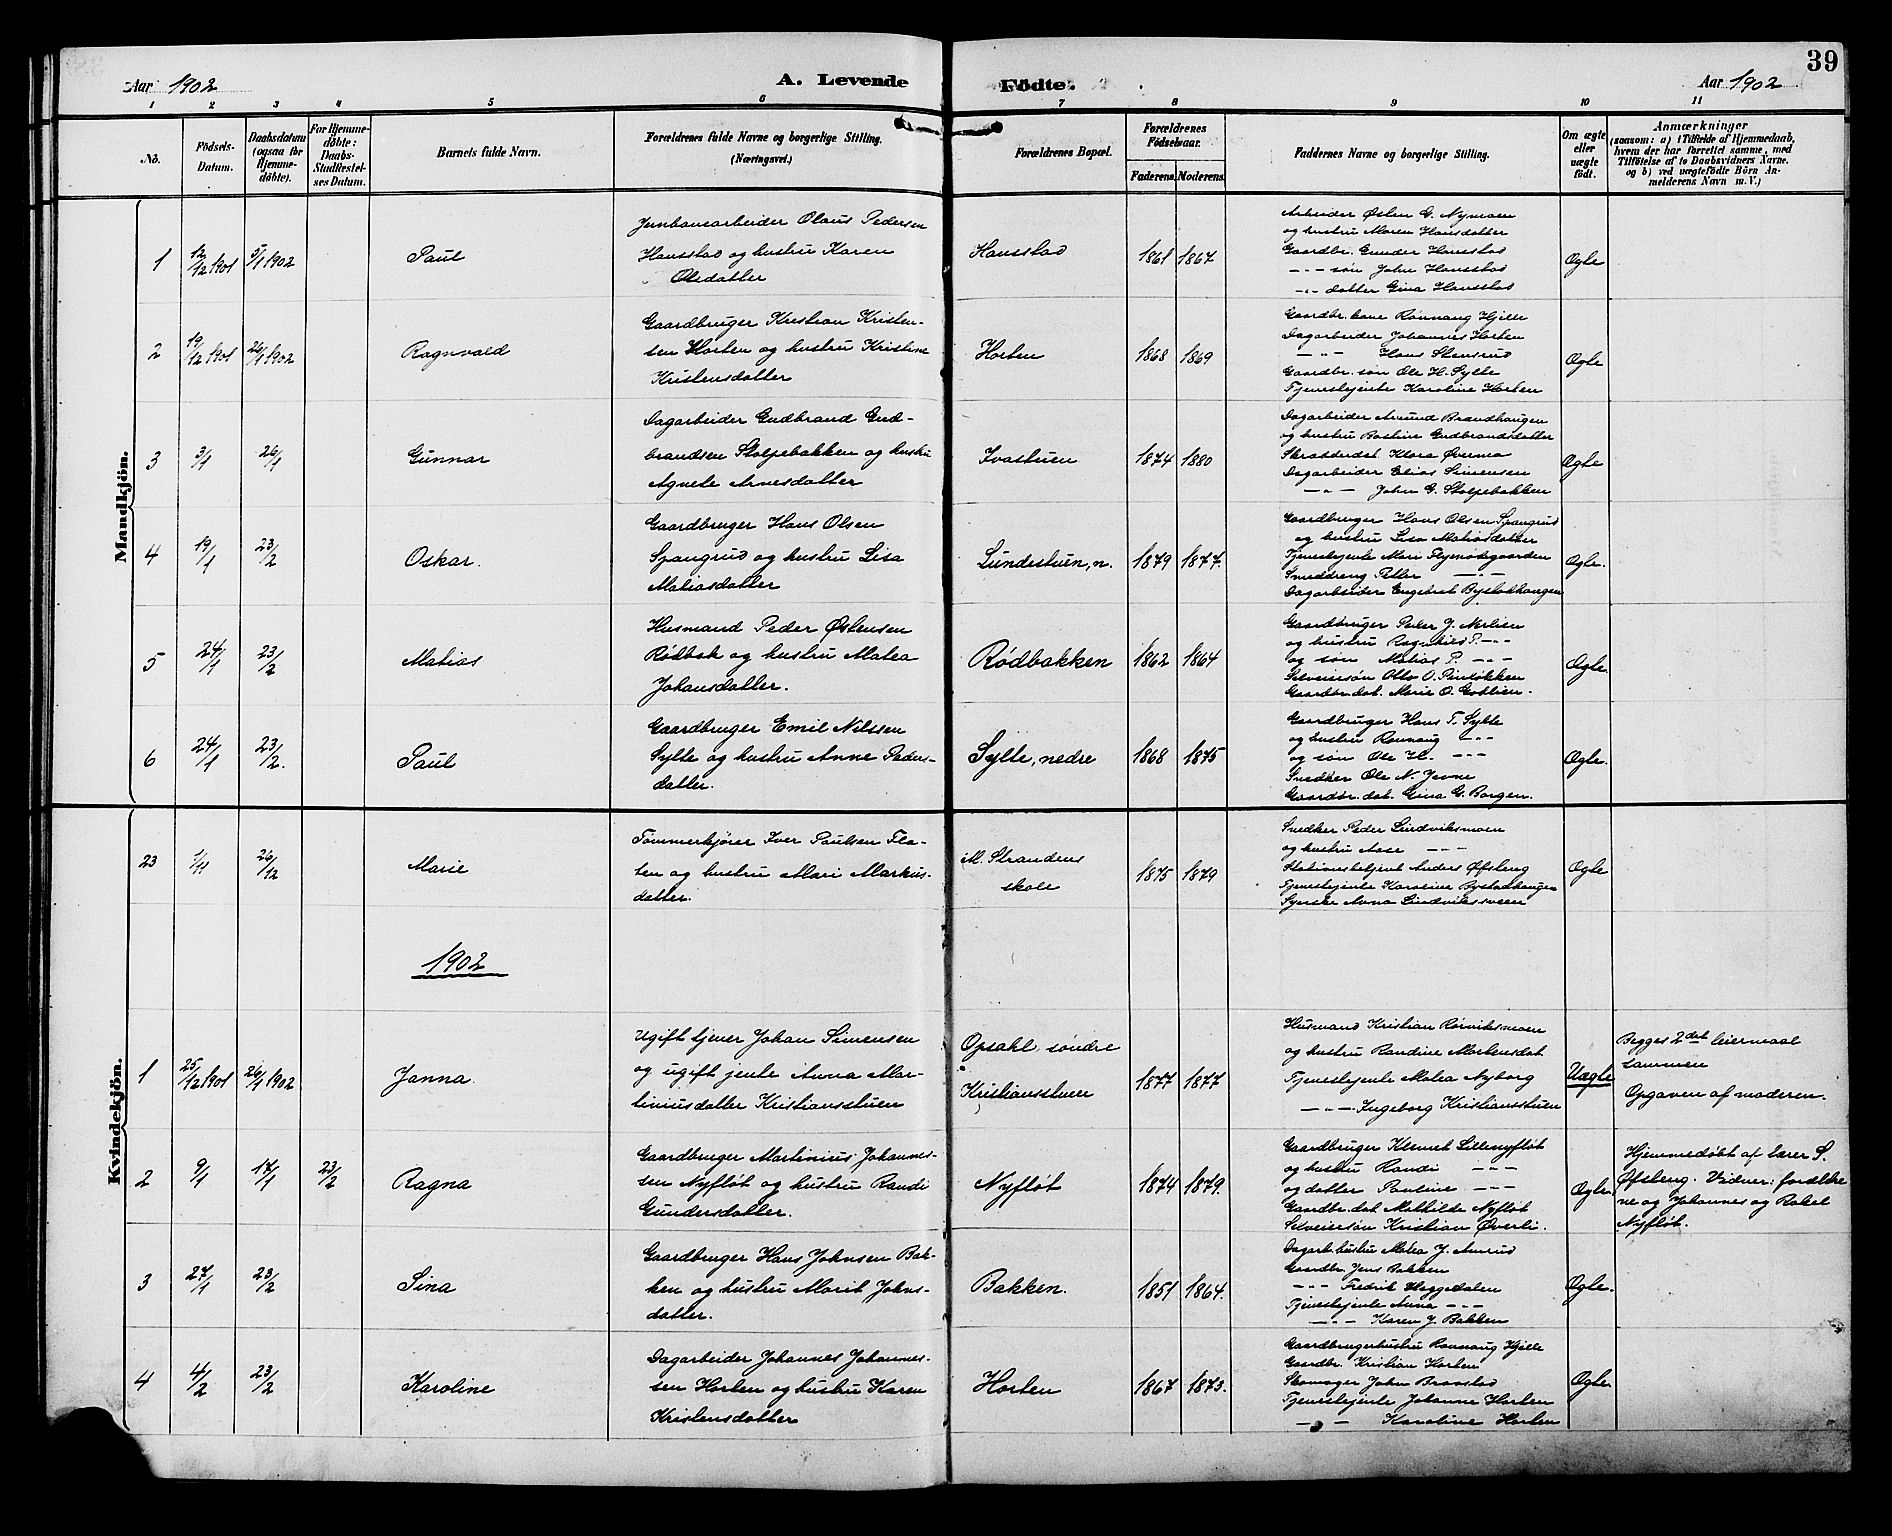 39
Aar 1902
A. Levende
Födte.
Aar 1902
1 2 3 4 5 6 7 8 9 10 11
No.
Födsels-
Datum.
Daabsdatum
(ogsaa for
Hjemme-
döbte).
For Hjemme-
döbte:
Daabs-
Stadfæstel-
ses Datum.
Barnets fulde Navn.
Forældrenes fulde Navne og borgerlige Stilling.
(Næringsvei.)
Forældrenes Bopæl.
Forældrenes
Födselsaar.
Faderens.
Moderens.
Faddernes Navne og borgerlige Stilling.
Om ægte
eller
uægte
födt.
Anmærkninger
(saasom: a) i Tilfælde af Hjemmedaab,
hvem der har forrettet samme, med
Tilföielse af to Daabsvidners Navne.
og b) ved uægtefödte Börn An-
melderens Navn m. V.)
Mandkjön.
1
12/12 1901
5/1 1902
Paul
Jernbanearbeider Olaus Pedersen
Hansstad og hustru Karen
Olsdatter
Hansstad
1861
1867
Arbeider Østen G. Nymoen
og hustru Maren Hansdatter
Gaardbr. Gunder Hansstad
—"— søn John Hansstad
—"— datter Gina Hansstad
Ægte
2
19/12 1901
26/1 1902
Ragnvald
Gaardbruger Kristian Kristen-
sen Horten og hustru Kristine
Kristensdatter
Horten
1868
1869
Gaardbr. kone Rønnaug Hjelle
Dagarbeider Johannes Horten
—"— Hans Stensrud
Gaardbr. søn Ole H. Sylte
Tjenestejente Karoline Horten
Ægte
3
3/1
26/1
Gunnar
Dagarbeider Gudbrand Gud-
brandsen Stolpebakken og hustru
Agnete Arnesdatter
Ivastuen
1874
1880
Dagarbeider Amund Brandhaugen
og hustru Bastine Gudbrandsdatter
Skrædderdat. Klara Øverma
Dagarbeider Elias Simensen
—"— John G. Stolpebakken
Ægte
4
19/1
23/2
Oskar.
Gaardbruger Hans Olsen
Spangrud og hustru Lisa
Matiasdatter
Lundestuen, n.
1879
1877.
Gaardbruger Hans Olsen Spangrud
og hustru Lisa Matiasdatter
Tjenestejente Mari
Smeddreng Petter —"—
Dagarbeider Engebret Bystøkhaugen
Ægte.
5
24/1
23/2
Matias
Husmand Peder Østensen
Rødbak og hustru Matea
Johansdatter.
Rødbakken
1862
1864
Gaardbruger Peder J. Nerlien
og hustru Ragnhild P. —"—
og søn Matias P. —"—
Selveiersøn Otto O.
Gaardbr. dat. Marie O. Godlien.
Ægte.
6
24/1
23/2.
Paul
Gaardbruger Emil Nilssen
Sylte og hustru Anne Peders-
datter.
Sylte, nedre
1868
1875
Gaardbruger Hans T. Sylte
og hustru Rønnaug —"—
og søn Ole H. —"—
Snedker Ole N. Jevne
Gaardbr. dat. Gina G. Borgen.
Ægte.
Kvindekjön.
23
1/11
26/12
Marie
Tømmerkjører Iver Paulsen Fla-
ten og hustru Mari Markus-
datter.
M. Strandens
skole
1875
1879
Snedker Peder Lindviksmoen
og hustru Aase —"—
Stationsbetjent Anders Øfsteng
Tjenestejente Karoline Bystøkhaugen
Syerske Anna Lindvikssveen
Ægte
1902
1
25/12 1901
26/1 1902
Janna.
Ugift tjener Johan Simensen
og ugift jente Anna Mar-
tiniusdatter Kristiansstuen
Opsahl, søndre
Kristiansstuen
1877
1877
Husmand Kristian Rørviksmoen
og hustru Randine Mortensdat
Tjenestejente Matea Nyborg
—"— Ingeborg Kristiansstuen
Uægte
Begges 2det leiermaal
sammen
Opgaven af moderen.
2
9/1
17/1
23/2
Ragna
Gaardbruger Martinius Johannes-
sen Nyfløt og hustru Randi
Gundersdatter.
Nyfløt
1874
1879.
Gaardbruger Klemet Lillenyfløt
og hustru Randi —"—
og datter Pauline —"—
Gaardbr. dat Mathilde Nyfløt
Selveiersøn Kristian Øverli.
Ægte.
Hjemmedøbt af lærer S.
Øfsteng. Vidner: forældre
ne og Johannes og Rakel
Nyfløt.
3
27/1
23/2
Sina
Gaardbruger Hans Johnsen Bak-
ken og hustru Marit Johns-
datter.
Bakken.
1851
1864.
Dagarb. hustru Matea J. Amrud
Gaardbr. Jens Bakken
—"— Fredrik Heggedalen
Tjenestejente Anna —"—
—"— Karen J. Bakken
Ægte.
4
4/2
23/2
Karoline
Dagarbeider Johannes Johannes-
sen Horten og hustru Karen
Kristensdatter
Horten
1867
1873.
Gaardbrugerhustru Rønnaug Hjelle
Gaardbr. Kristian Horten
Skomager John Braastad
Tjenestejente Johanne Horten
—"— Karoline Horten
Ægte